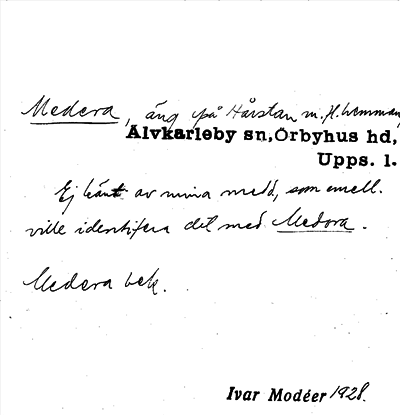 Medera, äng på Hårstan m. fl. hemman,
Älvkarleby sn, Örbyhus hd,
Upps. l.
Ej känt av mina medd, som emell.
ville identifiera det med Medora.
Medera bek.
Ivar Modéer 1928.